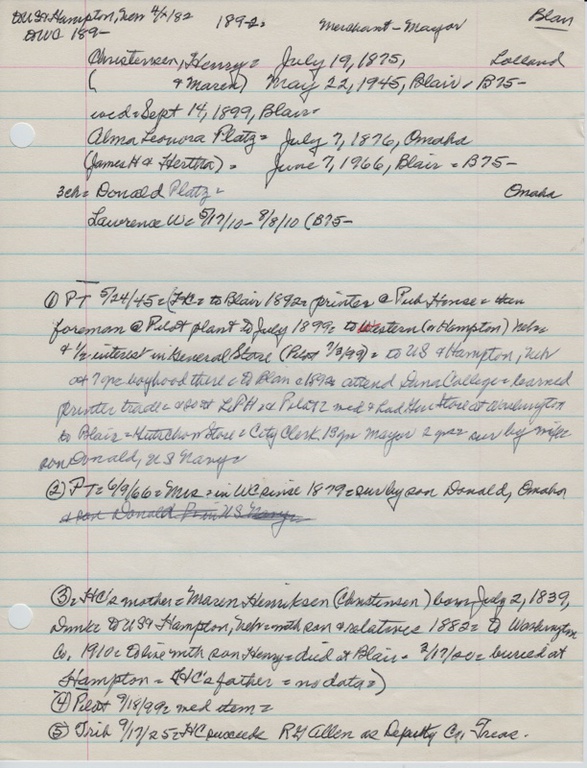 to US & Hampton, Neb 4/ /82 1892 Merchant - Mayor Blair
DWC 189-
Christensen, Henry = July 19, 1875, Lolland
( & Maren) May 22, 1945, Blair = B75-
wed = Sept 14, 1899, Blair =
Alma Leonora Platz = July 7, 1876, Omaha
(James H & Hertha) = June 7, 1966, Blair = B75-
3ch = Donald Platz = Omaha
Lawrence W = 5/17/10 - 8/8/10 (B75-
① PT 5/24/45 = (HC = to Blair 1892 = printer @ Pub House = then
foreman @ Pilot plant to July 1899 = to Western (or Hampton) Nebr
& 1/2 interest in General Store (Pilot 7/3/99) = to US & Hampton, Nebr
at 7 yr = boyhood there = to Blair = 1892 = attend Dana College = learned
printer trade = @ LPH & Pilot = wed & had Gen Store at Washington
to Blair = Store = City Clerk 13 yr Mayor 2 yrs = sur by wife
son Donald, US Navy =
② PT = 6/9/66 = Mrs = in WC since 1879 = sur by son Donald, Omaha
= son Donald P = in US Navy =
③ = HC's mother = Maren Henriksen (Christensen) born July 2, 1839,
Dmk = to US & Hampton, Nebr = with son & relatives 1882 = to Washington
Co, 1910 = to live with son Henry = died at Blair = 2/17/20 = buried at
Hampton = (HC's father = no data =)
④ Pilot 9/18/99 = wed item =
⑤ Trib 9/17/25 = HC succeeds RG Allen as Deputy Co, Treas.